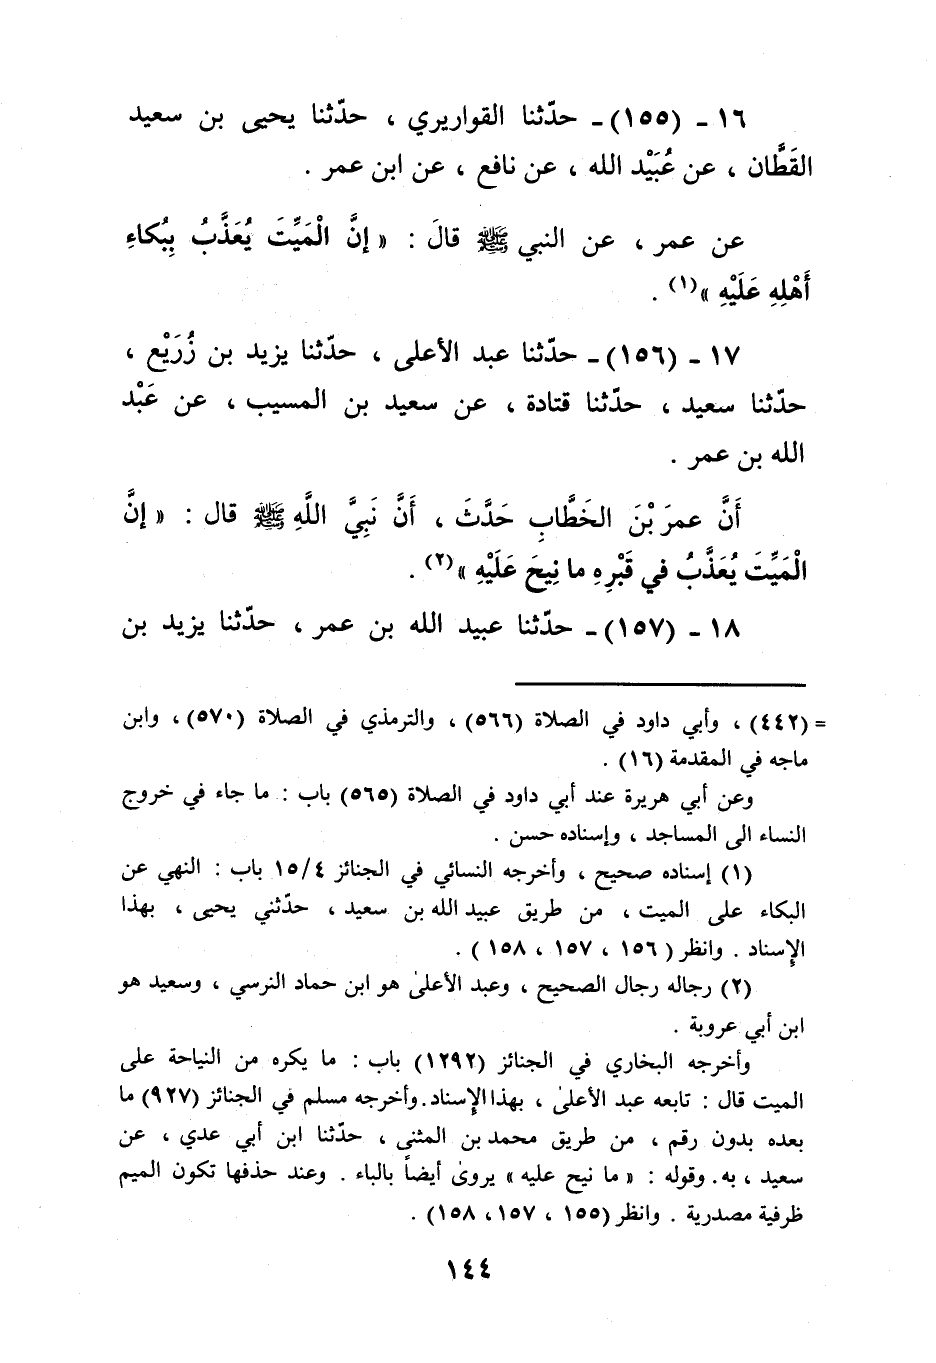 ١٦ ـ (١٥٥)ـ حدّثنا القواريري ، حدّثنا يحيى بن سعيد
القَطَّان ، عن عُبَيْد الله ، عن نافع ، عن ابن عمر .
عن عمر ، عن النبي ﷺ قالَ : « إنَّ الْمَيِّتَ يُعَذَّبُ بِبُكاءِ
أَهْلِهِ عَلَيْهِ »(١) .
١٧ ـ (١٥٦)ـ حدّثنا عبد الأعلى ، حدّثنا يزيد بن زُرَيْع ،
حدّثنا سعيد ، حدّثنا قتادة ، عن سعيد بن المسيب ، عن عَبْد
الله بن عمر .
أَنَّ عمرَ بْنَ الخَطَّابِ حَدَّثَ ، أَنَّ نَبِيَّ اللَّهِ ﷺ قال : « إنَّ
الْمَيِّتَ يُعَذَّبُ في قَبْرِهِ ما نِيحَ عَلَيْهِ »(٢) .
١٨ ـ (١٥٧)ـ حدّثنا عبيد الله بن عمر ، حدّثنا يزيد بن
= (٤٤٢) ، وأبي داود في الصلاة (٥٦٦) ، والترمذي في الصلاة (٥٧٠) ، وابن
ماجه في المقدمة (١٦) .
وعن أبي هريرة عند أبي داود في الصلاة (٥٦٥) باب : ما جاء في خروج
النساء الى المساجد ، وإسناده حسن .
(١) إسناده صحيح ، وأخرجه النسائي في الجنائز ١٥/٤ باب : النهي عن
البكاء على الميت ، من طريق عبيد الله بن سعيد ، حدّثني يحيى ، بهذا
الإسناد . وانظر ( ١٥٦ ، ١٥٧ ، ١٥٨ ) .
(٢) رجاله رجال الصحيح ، وعبد الأعلىٰ هو ابن حماد النرسي ، وسعيد هو
ابن أبي عروبة .
وأخرجه البخاري في الجنائز (١٢٩٢) باب : ما يكره من النياحة على
الميت قال : تابعه عبد الأعلىٰ ، بهذا الإسناد. وأخرجه مسلم في الجنائز (٩٢٧) ما
بعده بدون رقم ، من طريق محمد بن المثنى ، حدّثنا ابن أبي عدي ، عن
سعيد ، به . وقوله : « ما نيح عليه » يروىٰ أيضاً بالباء . وعند حذفها تكون الميم
ظرفية مصدرية . وانظر (١٥٥ ، ١٥٧، ١٥٨) .
١٤٤